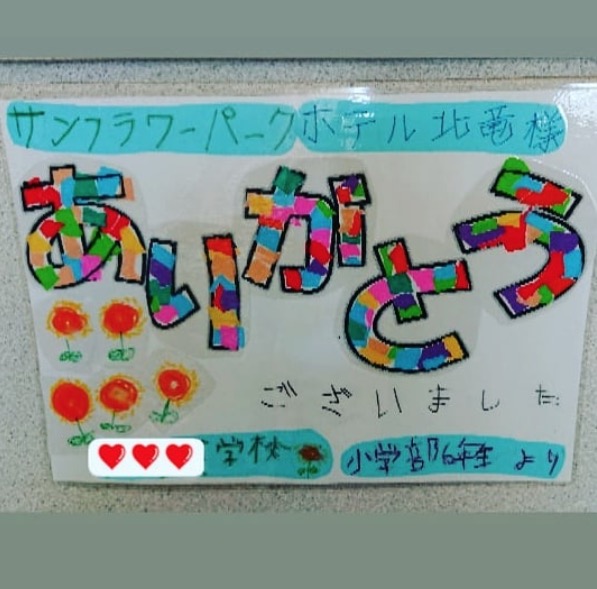 サンフラワーパークホテル北竜様
ありがとう
ございました
学校 小学部6年生 より